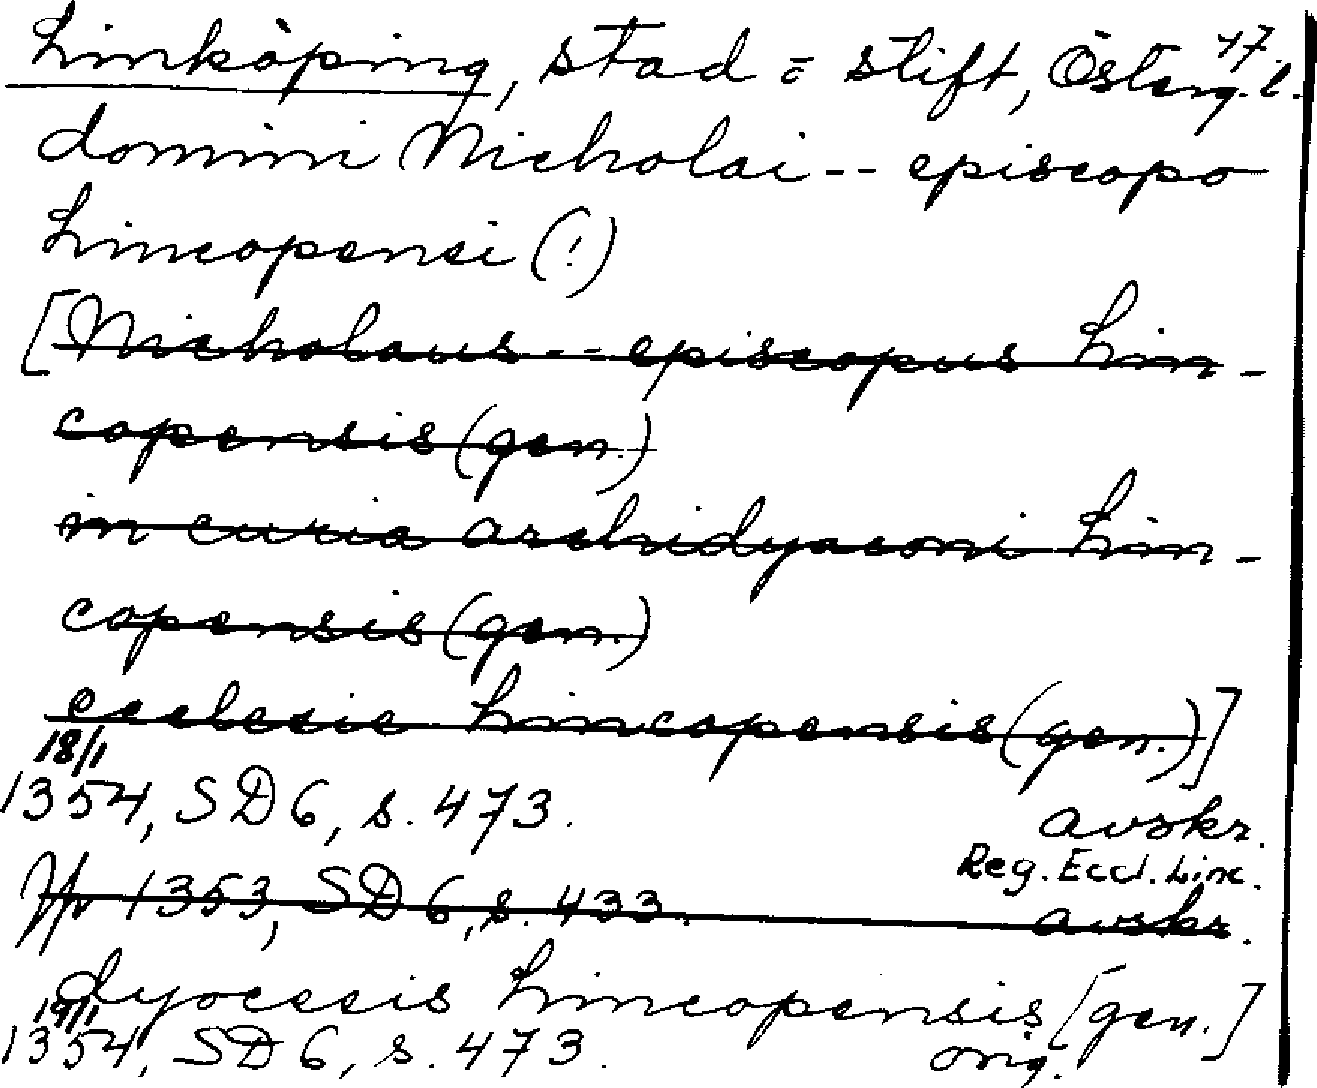 47.
Linköping, stad o stift, Österg. l.
domini Nicholai -- episcopo
Lincopensi (!)
[Nicholaus -- episcopus Lin-
copensis (gen.)
in curia archidyaconi Lin-
copensis (gen.)
ecclesie Lincopensis (gen.)]
18/1
1354, SD 6, s. 473. avskr.
Reg. Eccl. Linc.
1353, SD 6, s. 433. avskr.
dyocesis Lincopensis [gen.]
19/1
1354, SD 6, s. 473. orig.